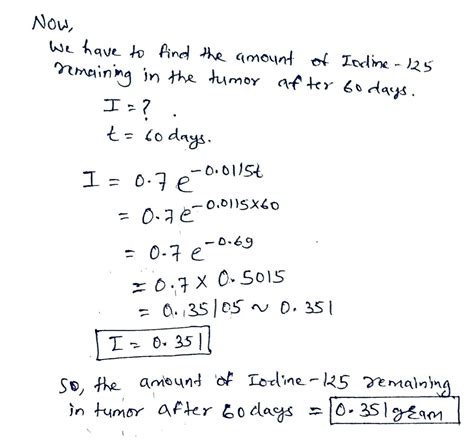 Now,
We have to find the amount of Iodine - 125
remaining in the tumor after 60 days.
I = ?
t = 60 days.
I = 0.7 e^-0.0115t
= 0.7 e^-0.0115×60
= 0.7 e^-0.69
= 0.7 × 0.5015
= 0.35105 ~ 0.351
I = 0.351
So, the amount of Iodine - 125 remaining
in tumor after 60 days = 0.351 gram